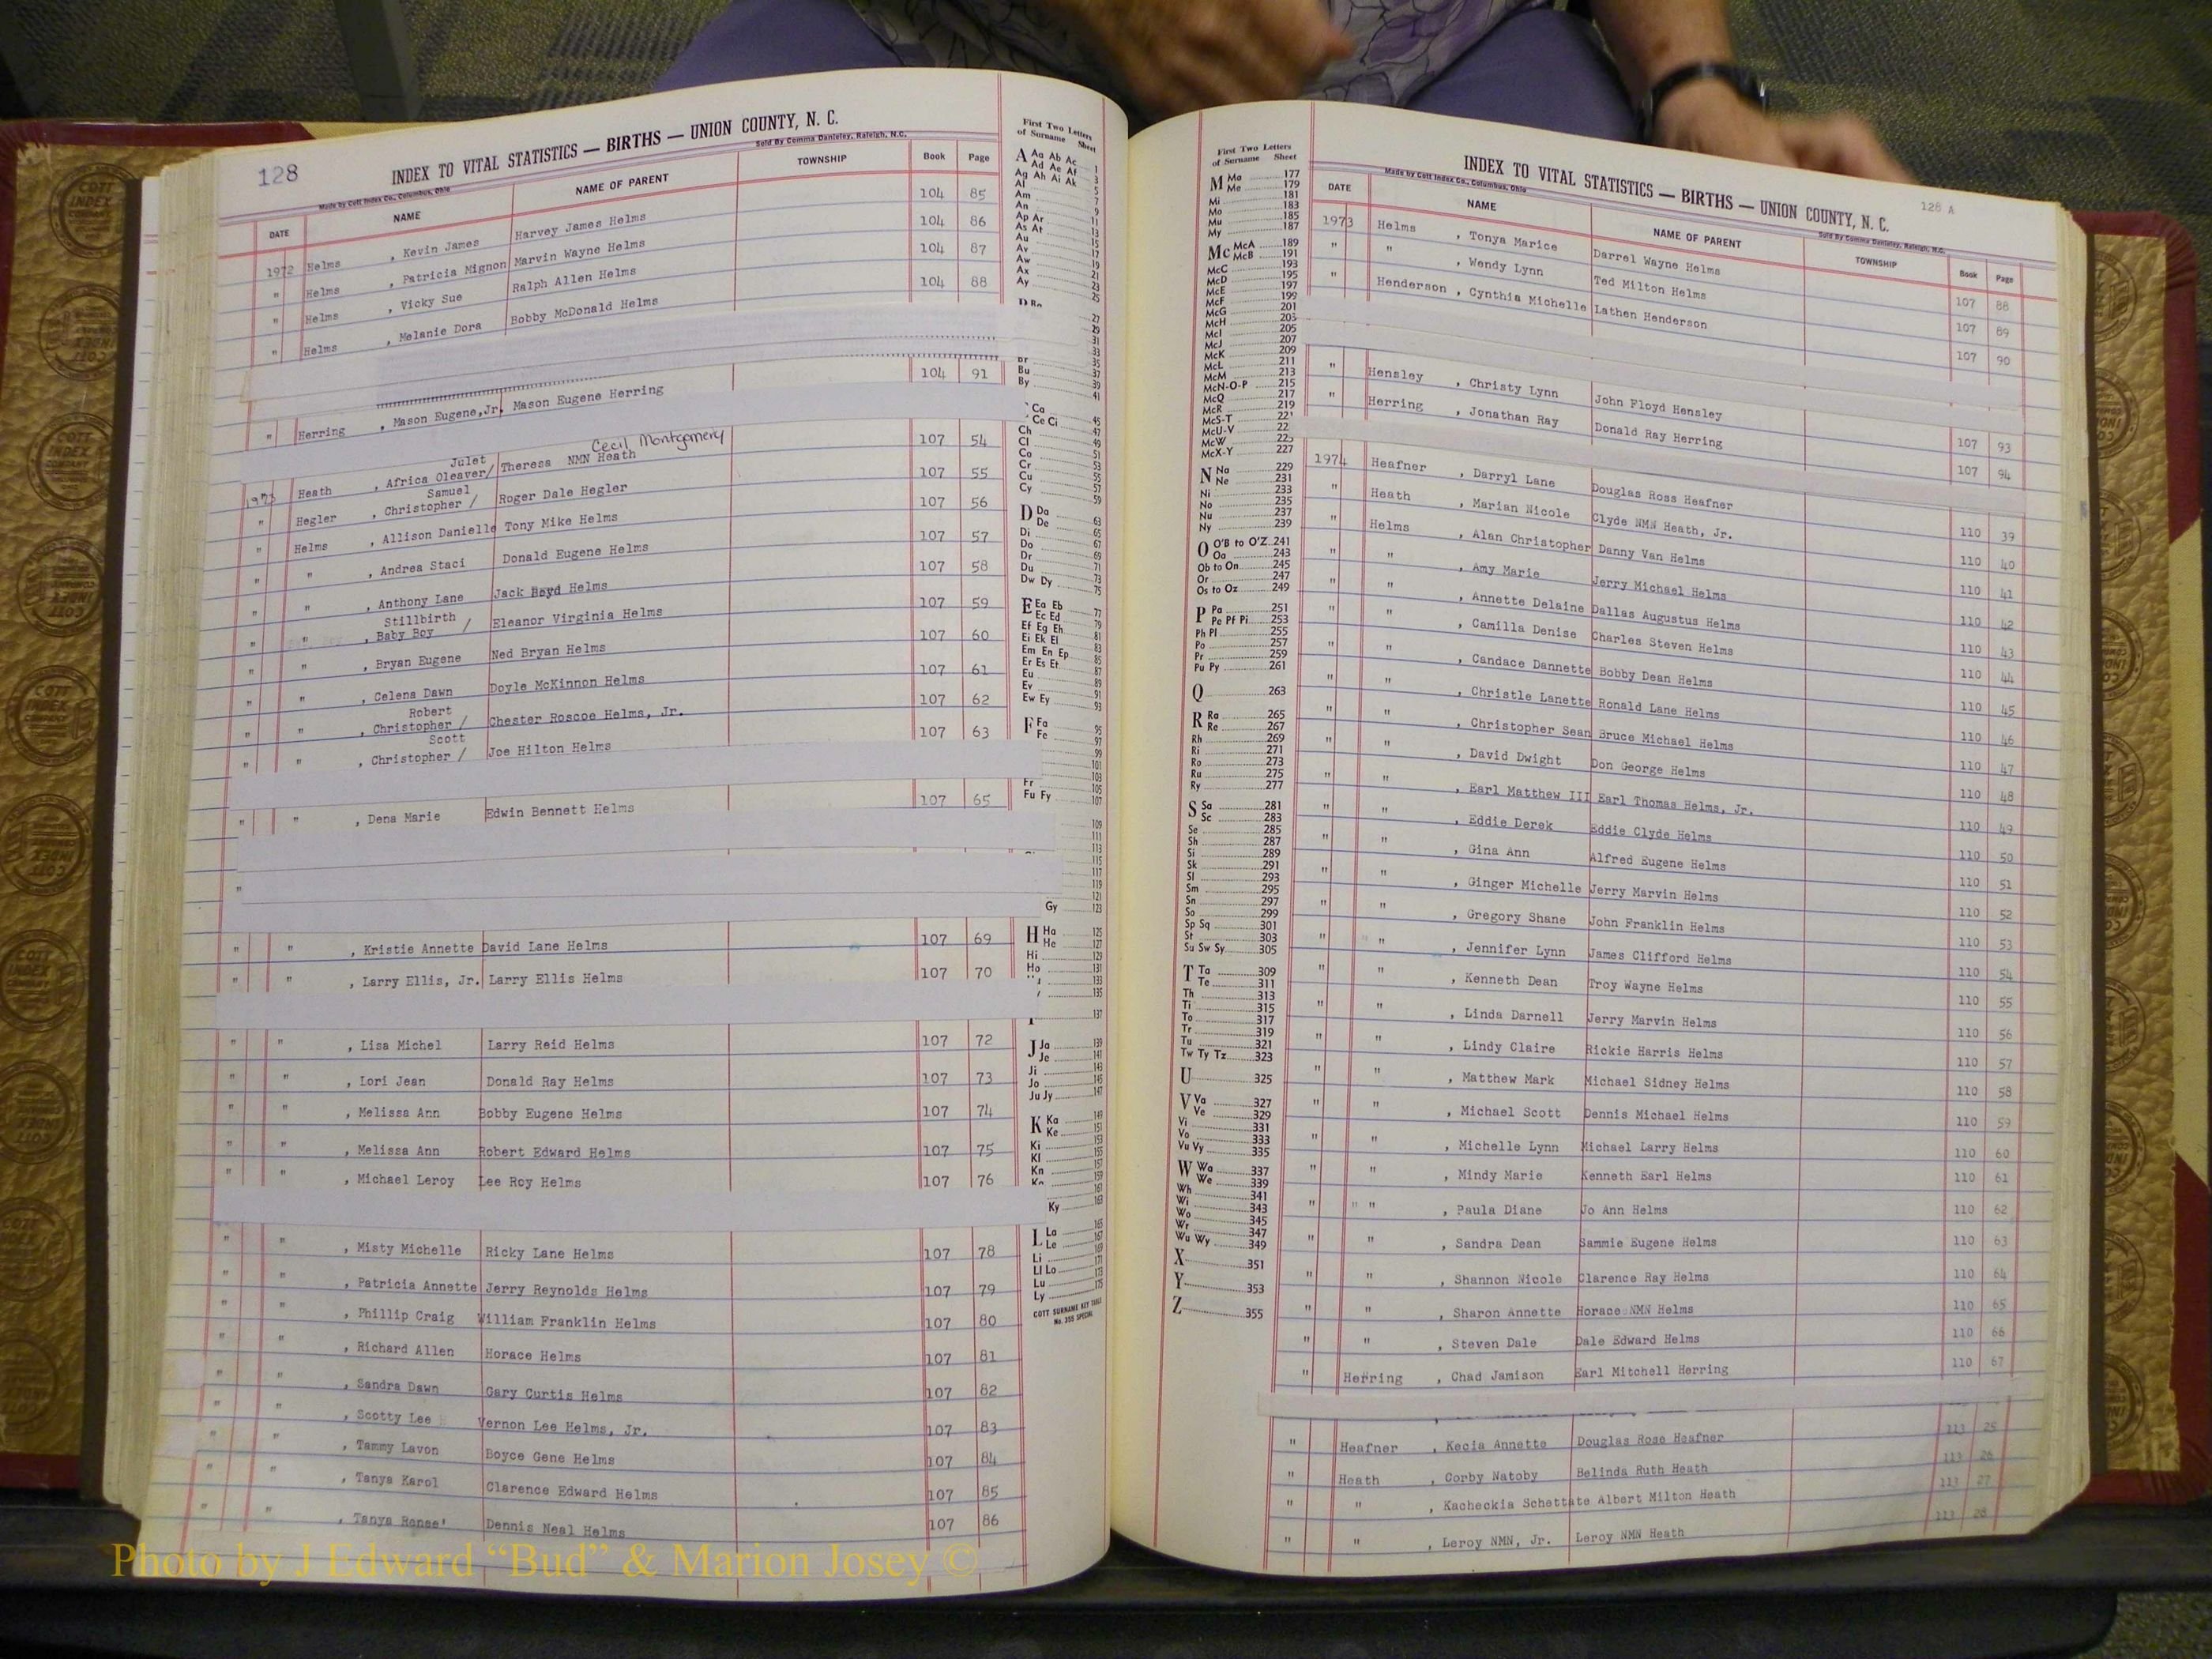 128
INDEX TO VITAL STATISTICS — BIRTHS — UNION COUNTY, N. C.
Made by Cott Index Co., Columbus, Ohio Sold By Comma Danieley, Raleigh, N.C.
DATE NAME NAME OF PARENT TOWNSHIP Book Page
1972 Helms , Kevin James Harvey James Helms 104 85
" Helms , Patricia Mignon Marvin Wayne Helms 104 86
" Helms , Vicky Sue Ralph Allen Helms 104 87
" Helms , Melanie Dora Bobby McDonald Helms 104 88
" Herring , Mason Eugene,Jr. Mason Eugene Herring 104 91
Cecil Montgomery
Julet
1973 Heath , Africa Oleaver/ Theresa NMN Heath 107 54
Samuel
" Hegler , Christopher / Roger Dale Hegler 107 55
" Helms , Allison Danielle Tony Mike Helms 107 56
" " , Andrea Staci Donald Eugene Helms 107 57
" " , Anthony Lane Jack Boyd Helms 107 58
Stillbirth
" " , Baby Boy / Eleanor Virginia Helms 107 59
" " , Bryan Eugene Ned Bryan Helms 107 60
" " , Celena Dawn Doyle McKinnon Helms 107 61
Robert
" " , Christopher / Chester Roscoe Helms, Jr. 107 62
Scott
" " , Christopher / Joe Hilton Helms 107 63
" " , Dena Marie Edwin Bennett Helms 107 65
"
" " , Kristie Annette David Lane Helms 107 69
" " , Larry Ellis, Jr. Larry Ellis Helms 107 70
" " , Lisa Michel Larry Reid Helms 107 72
" " , Lori Jean Donald Ray Helms 107 73
" " , Melissa Ann Bobby Eugene Helms 107 74
" " , Melissa Ann Robert Edward Helms 107 75
" " , Michael Leroy Lee Roy Helms 107 76
" " , Misty Michelle Ricky Lane Helms 107 78
" " , Patricia Annette Jerry Reynolds Helms 107 79
" " , Phillip Craig William Franklin Helms 107 80
" " , Richard Allen Horace Helms 107 81
" " , Sandra Dawn Gary Curtis Helms 107 82
" " , Scotty Lee Vernon Lee Helms, Jr. 107 83
" " , Tammy Lavon Boyce Gene Helms 107 84
" " , Tanya Karol Clarence Edward Helms 107 85
" " , Tanya Renee' Dennis Neal Helms 107 86
First Two Letters
of Surname Sheet
A Aa Ab Ac 1
Ad Ae Af 3
Ag Ah Ai Ak 5
Al 7
Am 9
An 11
Ap Ar 13
As At 15
Au 17
Av 19
Aw 21
Ax 23
Ay 25
27
29
31
33
Br 35
Bu 37
By 39
41
Ca
Ce Ci 45
Ch 47
Cl 49
Co 51
Cr 53
Cu 55
Cy 57
59
D Da
De 63
Di 65
Do 67
Dr 69
Du 71
Dw Dy 73
75
E Ea Eb 77
Ec Ed 79
Ef Eg Eh 81
Ei Ek El 83
Em En Ep 85
Er Es Et 87
Eu 89
Ev 91
Ew Ey 93
F Fa 95
Fe 97
99
101
Fr 103
105
Fu Fy 107
109
111
113
115
117
119
121
Gy 123
H Ha 125
He 127
Hi 129
Ho 131
133
135
137
J Ja 139
Je 141
Ji 143
Jo 145
Ju Jy 147
K Ka 149
Ke 151
Ki 153
Kl 155
Kn 157
161
Ky 163
L La 165
Le 167
Li 169
Ll Lo 171
Lu 173
Ly 175
COTT SURNAME KEY TABLE
No. 355 SPECIAL
First Two Letters
of Surname Sheet
M Ma 177
Me 179
Mi 181
Mo 183
Mu 185
My 187
Mc McA 189
McB 191
McC 193
McD 195
McE 197
McF 199
McG 201
McH 203
McI 205
McJ 207
McK 209
McL 211
McM 213
McN-O-P 215
McQ 217
McR 219
McS-T 221
McU-V 22
McW 225
McX-Y 227
N Na 229
Ne 231
Ni 233
No 235
Nu 237
Ny 239
O O'B to O'Z 241
Oa 243
Ob to On 245
Or 247
Os to Oz 249
P Pa 251
Pe Pf Pi 253
Ph Pl 255
Po 257
Pr 259
Pu Py 261
Q 263
R Ra 265
Re 267
Rh 269
Ri 271
Ro 273
Ru 275
Ry 277
S Sa 281
Sc 283
Se 285
Sh 287
Si 289
Sk 291
Sl 293
Sm 295
Sn 297
So 299
Sp Sq 301
St 303
Su Sw Sy 305
T Ta 309
Te 311
Th 313
Ti 315
To 317
Tr 319
Tu 321
Tw Ty Tz 323
U 325
V Va 327
Ve 329
Vi 331
Vo 333
Vu Vy 335
W Wa 337
We 339
Wh 341
Wi 343
Wo 345
Wr 347
Wu Wy 349
X 351
Y 353
Z 355
128 A
INDEX TO VITAL STATISTICS — BIRTHS — UNION COUNTY, N. C.
Made by Cott Index Co., Columbus, Ohio Sold By Comma Danieley, Raleigh, N.C.
DATE NAME NAME OF PARENT TOWNSHIP Book Page
1973 Helms , Tonya Marice Darrel Wayne Helms 107 88
" " , Wendy Lynn Ted Milton Helms 107 89
" Henderson , Cynthia Michelle Lathen Henderson 107 90
" Hensley , Christy Lynn John Floyd Hensley 107 93
" Herring , Jonathan Ray Donald Ray Herring 107 94
1974 Heafner , Darryl Lane Douglas Ross Heafner 110 39
" Heath , Marian Nicole Clyde NMN Heath, Jr. 110 40
" Helms , Alan Christopher Danny Van Helms 110 41
" " , Amy Marie Jerry Michael Helms 110 42
" " , Annette Delaine Dallas Augustus Helms 110 43
" " , Camilla Denise Charles Steven Helms 110 44
" " , Candace Dannette Bobby Dean Helms 110 45
" " , Christle Lanette Ronald Lane Helms 110 46
" " , Christopher Sean Bruce Michael Helms 110 47
" " , David Dwight Don George Helms 110 48
" " , Earl Matthew III Earl Thomas Helms, Jr. 110 49
" " , Eddie Derek Eddie Clyde Helms 110 50
" " , Gina Ann Alfred Eugene Helms 110 51
" " , Ginger Michelle Jerry Marvin Helms 110 52
" " , Gregory Shane John Franklin Helms 110 53
" " , Jennifer Lynn James Clifford Helms 110 54
" " , Kenneth Dean Troy Wayne Helms 110 55
" " , Linda Darnell Jerry Marvin Helms 110 56
" " , Lindy Claire Rickie Harris Helms 110 57
" " , Matthew Mark Michael Sidney Helms 110 58
" " , Michael Scott Dennis Michael Helms 110 59
" " , Michelle Lynn Michael Larry Helms 110 60
" " , Mindy Marie Kenneth Earl Helms 110 61
" " , Paula Diane Jo Ann Helms 110 62
" " , Sandra Dean Sammie Eugene Helms 110 63
" " , Shannon Nicole Clarence Ray Helms 110 64
" " , Sharon Annette Horace NMN Helms 110 65
" " , Steven Dale Dale Edward Helms 110 66
" Herring , Chad Jamison Earl Mitchell Herring 110 67
" Heafner , Kecia Annette Douglas Rose Heafner 113 25
" Heath , Corby Natoby Belinda Ruth Heath 113 26
" " , Kacheckia Schettate Albert Milton Heath 113 27
" " , Leroy NMN, Jr. Leroy NMN Heath 113 28
Photo by J Edward “Bud” & Marion Josey ©